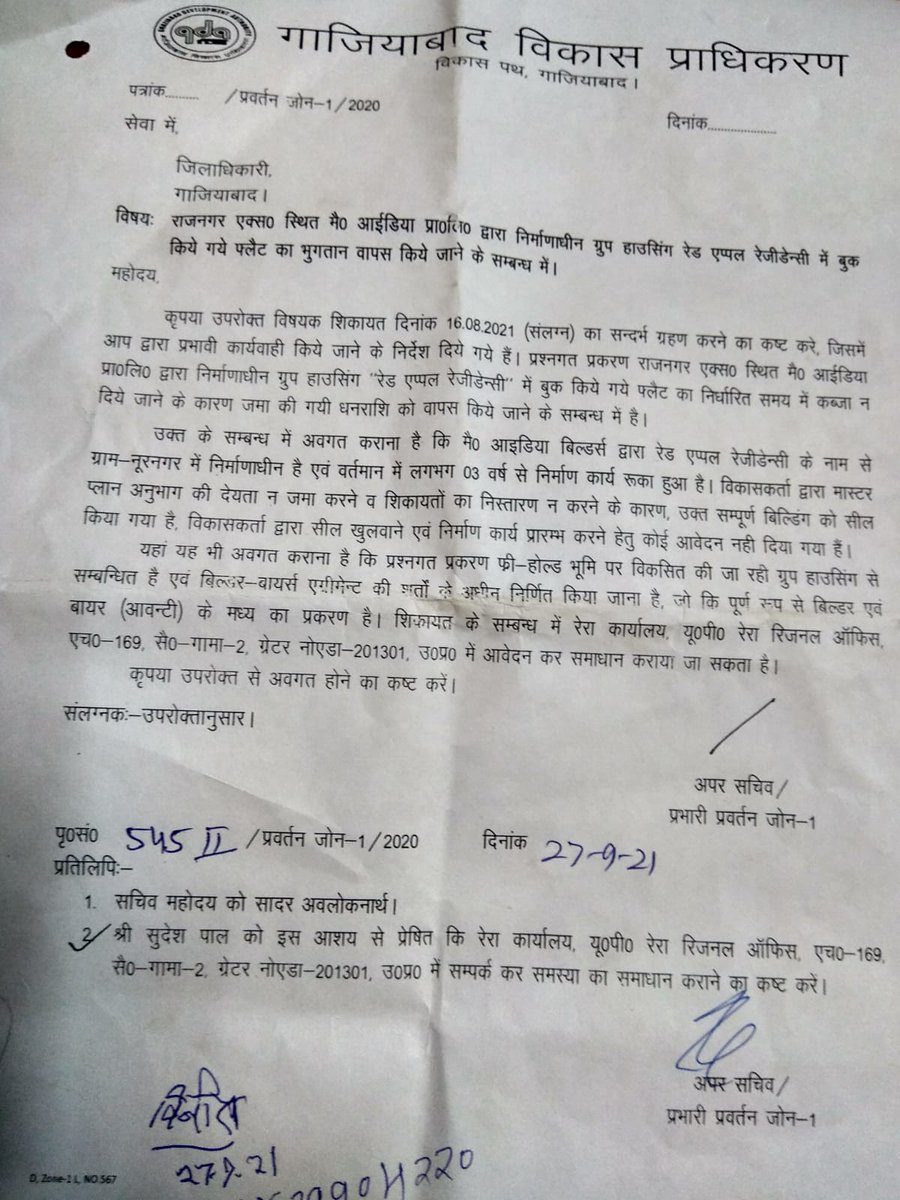 GHAZIABAD DEVELOPMENT AUTHORITY
gda
गाजियाबाद विकास प्राधिकरण
विकास पथ, गाजियाबाद।
पत्रांक......... /प्रवर्तन जोन–1/2020
दिनांक..................
सेवा में,
जिलाधिकारी,
गाजियाबाद।
विषयः राजनगर एक्स0 स्थित मै0 आईडिया प्रा0लि0 द्वारा निर्माणाधीन ग्रुप हाउसिंग रेड एप्पल रेजीडेन्सी में बुक
किये गये फ्लैट का भुगतान वापस किये जाने के सम्बन्ध में।
महोदय,
कृपया उपरोक्त विषयक शिकायत दिनांक 16.08.2021 (संलग्न) का सन्दर्भ ग्रहण करने का कष्ट करे, जिसमें
आप द्वारा प्रभावी कार्यवाही किये जाने के निर्देश दिये गये हैं। प्रश्नगत प्रकरण राजनगर एक्स0 स्थित मै0 आईडिया
प्रा0लि0 द्वारा निर्माणाधीन ग्रुप हाउसिंग "रेड एप्पल रेजीडेन्सी" में बुक किये गये फ्लैट का निर्धारित समय में कब्जा न
दिये जाने के कारण जमा की गयी धनराशि को वापस किये जाने के सम्बन्ध में है।
उक्त के सम्बन्ध में अवगत कराना है कि मै0 आइडिया बिल्डर्स द्वारा रेड एप्पल रेजीडेन्सी के नाम से
ग्राम–नूरनगर में निर्माणाधीन है एवं वर्तमान में लगभग 03 वर्ष से निर्माण कार्य रूका हुआ है। विकासकर्ता द्वारा मास्टर
प्लान अनुभाग की देयता न जमा करने व शिकायतों का निस्तारण न करने के कारण, उक्त सम्पूर्ण बिल्डिंग को सील
किया गया है, विकासकर्ता द्वारा सील खुलवाने एवं निर्माण कार्य प्रारम्भ करने हेतु कोई आवेदन नही दिया गया हैं।
यहां यह भी अवगत कराना है कि प्रश्नगत प्रकरण फ्री–होल्ड भूमि पर विकसित की जा रही ग्रुप हाउसिंग से
सम्बन्धित है एवं बिल्डर–बायर्स एग्रीमेन्ट की शर्तो के अधीन निर्णित किया जाना है, जो कि पूर्ण रूप से बिल्डर एवं
बायर (आवन्टी) के मध्य का प्रकरण है। शिकायत के सम्बन्ध में रेरा कार्यालय, यू0पी0 रेरा रिजनल ऑफिस,
एच0–169, सै0–गामा–2, ग्रेटर नोएडा–201301, उ0प्र0 में आवेदन कर समाधान कराया जा सकता है।
कृपया उपरोक्त से अवगत होने का कष्ट करें।
संलग्नकः–उपरोक्तानुसार।
अपर सचिव/
प्रभारी प्रवर्तन जोन–1
पृ0सं0 545 II /प्रवर्तन जोन–1/2020 दिनांक 27-9-21
प्रतिलिपिः–
1. सचिव महोदय को सादर अवलोकनार्थ।
2. श्री सुदेश पाल को इस आशय से प्रेषित कि रेरा कार्यालय, यू0पी0 रेरा रिजनल ऑफिस, एच0–169,
सै0–गामा–2, ग्रेटर नोएडा–201301, उ0प्र0 में सम्पर्क कर समस्या का समाधान कराने का कष्ट करें।
अपर सचिव/
प्रभारी प्रवर्तन जोन–1
27.9.21
D, Zone-1 L, NO.567